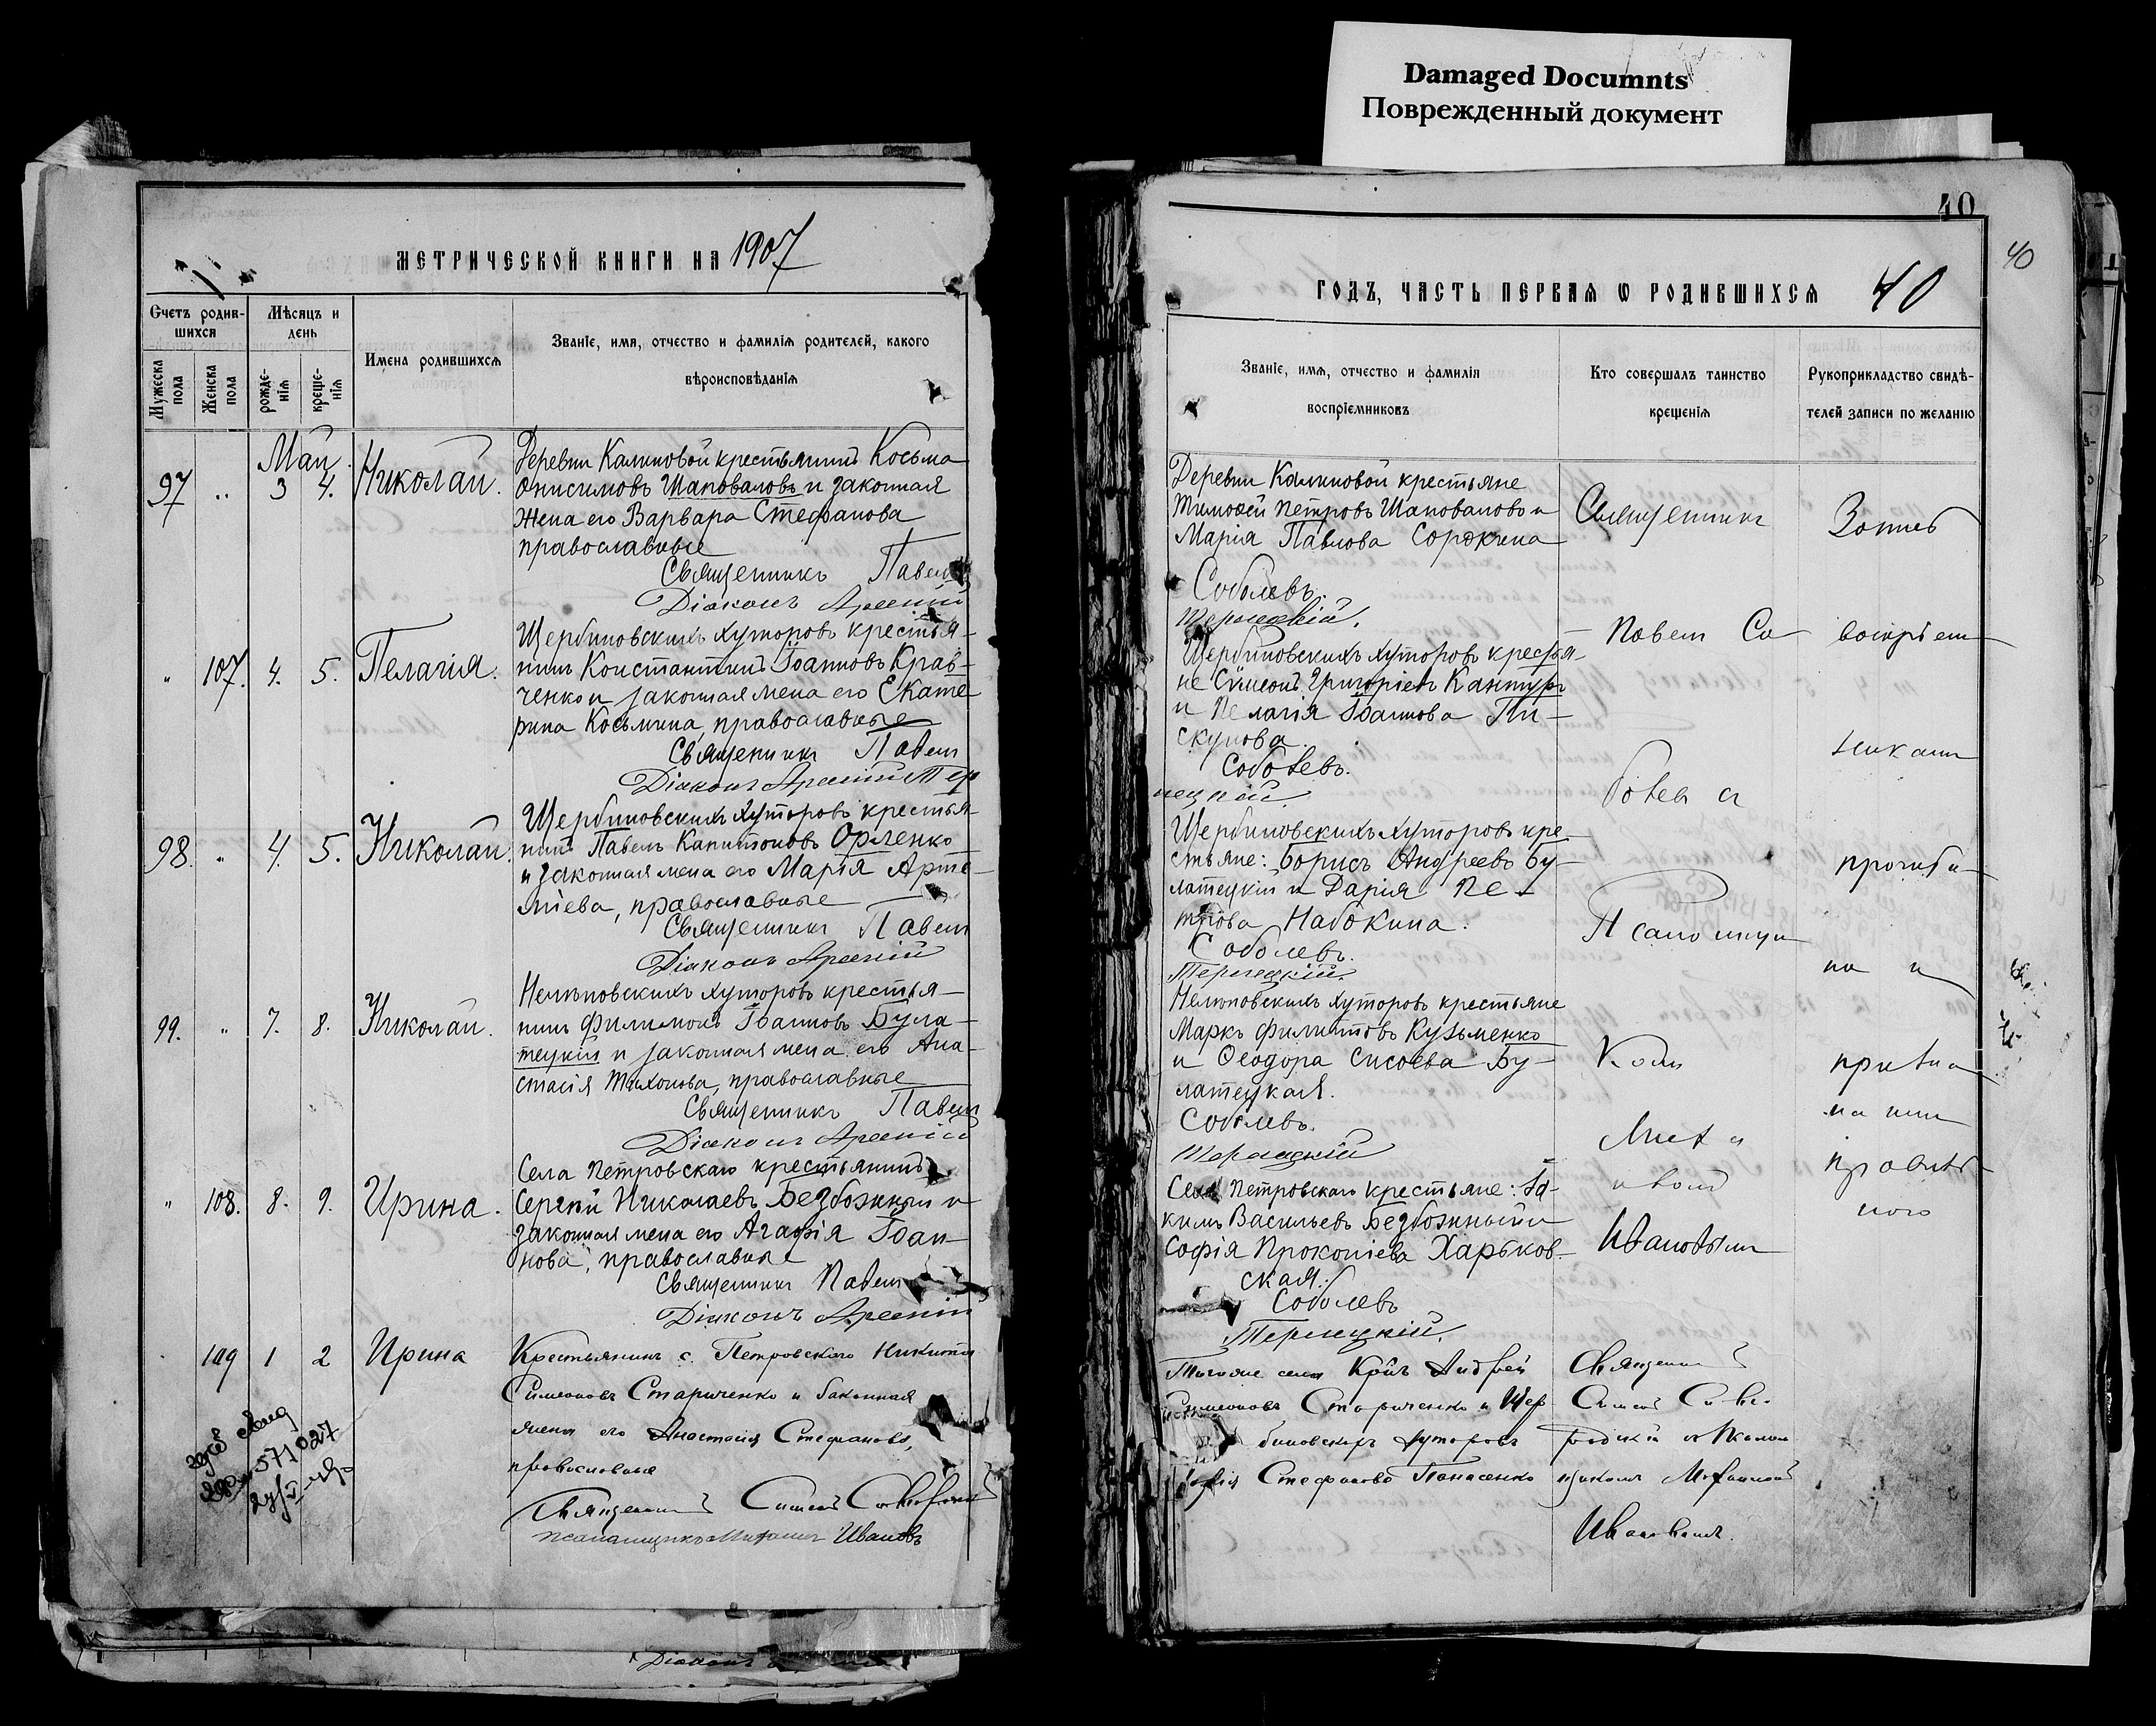 Damaged Documnts
Поврежденный документ
МЕТРИЧЕСКОЙ КНИГИ НА 1907
Счетъ родив-
шихся
Мѣсяцъ и
день
Мужеска
пола
Женска
пола
рожде-
нія
креще-
нія
Имена родившихся
Званіе, имя, отчество и фамилія родителей, какого
вѣроисповѣданія
Май
97 " 3 4. Николай.
Деревни Калиновой крестьянинъ Косьма
Онисимовъ Шаповаловъ и законная
жена его Варвара Стефанова
православные
Священникъ Павелъ
Діаконъ Арсеній
" 107. 4. 5. Пелагія.
Щербиновскихъ хуторовъ крестья-
нинъ Константинъ Іоанновъ Крав-
ченко и законная жена его Екате
рина Косьмина, православные
Священникъ Павелъ
Діаконъ Арсеній Тер
98. " 4. 5. Николай.
Щербиновскихъ хуторовъ крестья-
нинъ Павелъ Капитоновъ Орленко
и законная жена его Марія Арте-
міева, православные
Священникъ Павелъ
Діаконъ Арсеній
99. " 7. 8. Николай.
Нелѣповскихъ хуторовъ крестья-
нинъ Филимонъ Іоанновъ Була-
тецкій и законная жена его Ана-
стасія Тихонова, православные
Священникъ Павелъ
Діаконъ Арсеній
" 108. 8. 9. Ирина.
Села Петровскаго крестьянинъ
Сергѣй Николаевъ Безбожный и
законная жена его Агафія Іоан-
нова, православные
Священникъ Павелъ
Діаконъ Арсеній
109 1 2 Ирина
Крестьянинъ с. Петровскаго Никита
Симеоновъ Стариченко и законная
жена его Анастасія Стефанова,
православные
Священникъ Симеонъ
псаломщикъ Митрофанъ Ивановъ
571027
40
40
ГОДЪ, ЧАСТЬ ПЕРВАЯ Ѡ РОДИВШИХСЯ 40
Званіе, имя, отчество и фамилія
воспріемниковъ
Кто совершалъ таинство
крещенія
Рукоприкладство свидѣ-
телей записи по желанію
Деревни Калиновой крестьяне
Тимоѳей Петровъ Шаповаловъ и
Марія Павлова Сорокина
Соболевъ.
Терлецкій.
Щербиновскихъ хуторовъ крестья-
не Сѵмеонъ Григоріевъ Кантуръ
и Пелагія Іоаннова Пи-
скунова.
Соболевъ.
лецкій.
Щербиновскихъ хуторовъ кре-
стьяне: Борисъ Андреевъ Бу-
латецкій и Дарія Пе-
трова Набокина.
Соболевъ.
Терлецкій.
Нелѣповскихъ хуторовъ крестьяне
Маркъ Филиповъ Кузьменко
и Ѳеодора Сисоева Бу-
латецкая.
Соболевъ.
Терлецкій
Села Петровскаго крестьяне: Іа-
кимъ Васильевъ Безбожный и
Софія Прокопіева Харьков-
ская.
Соболевъ
Терлецкій.
Тогоже села Кр-нъ Андрей
Симеоновъ Стариченко и Щер-
биновскихъ хуторовъ
Софія Стефанова Панасенко
Священникъ
Павелъ Со-
болев
Псаломщи-
комъ
Ивановымъ
Священникъ
Симеонъ
псаломщикомъ Митрофаномъ
Ивановымъ.
воспріем-
никами